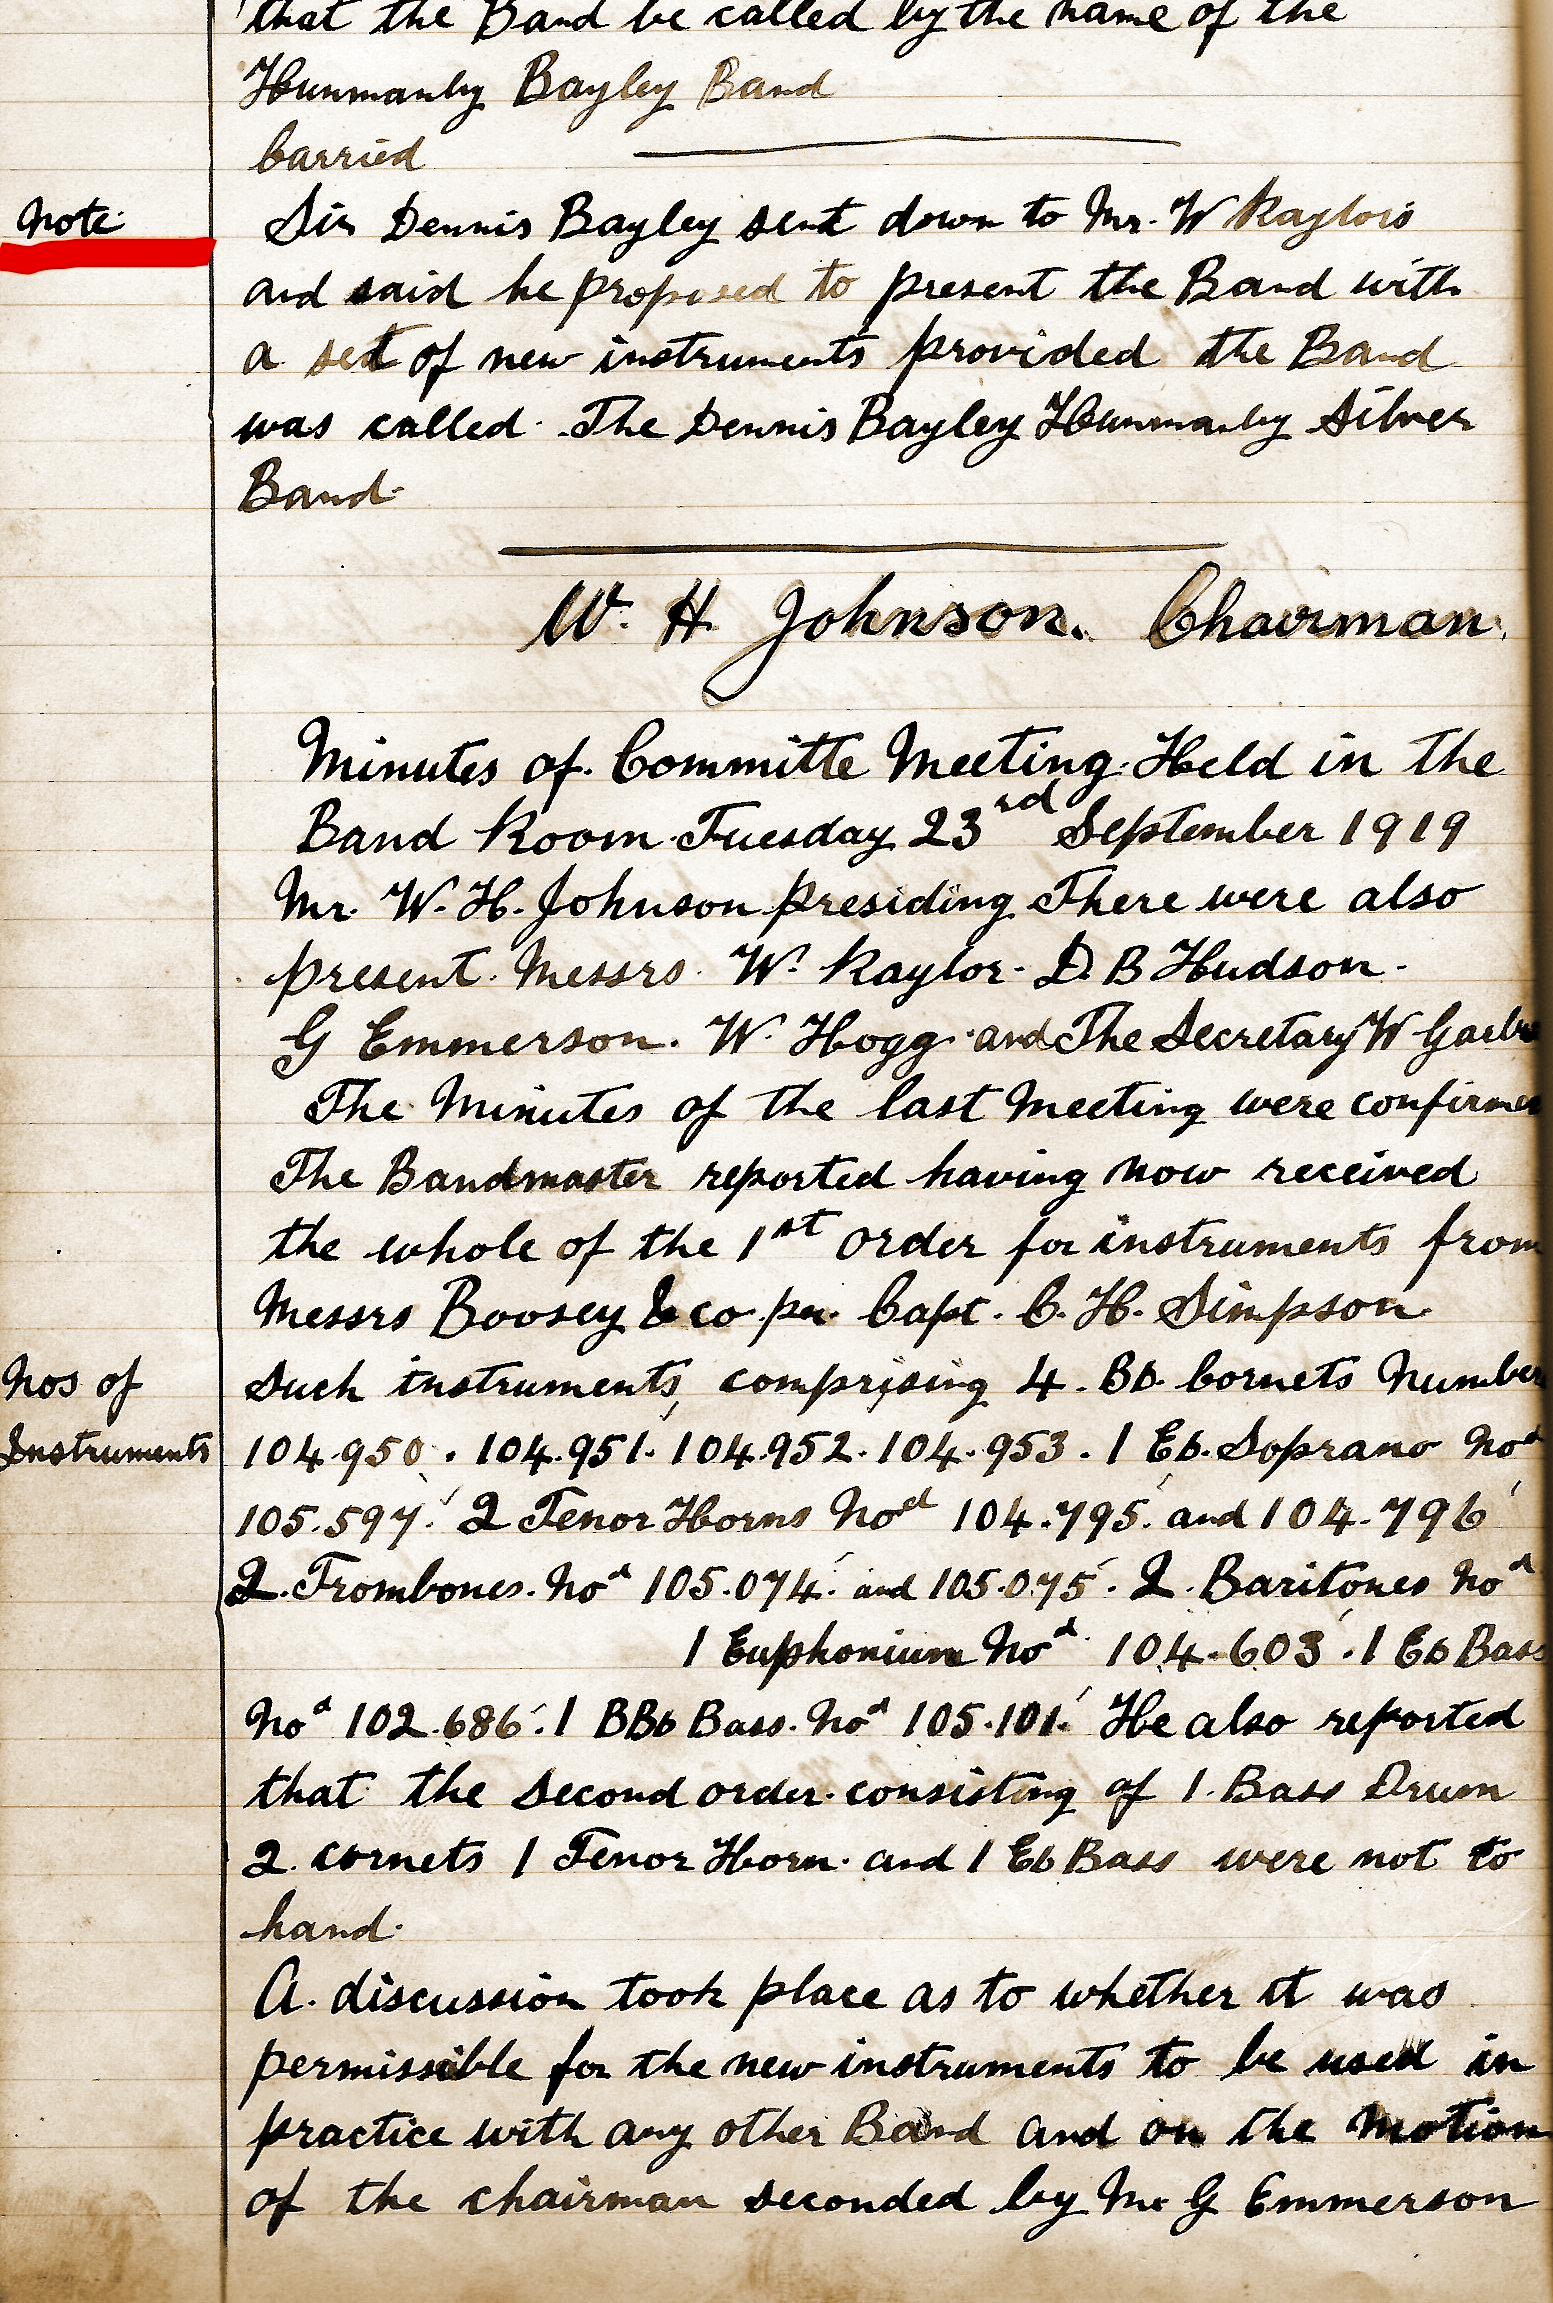 that the Band be called by the name of the
Hunmanby Bayley Band
Carried
Note
Sir Dennis Bayley sent down to Mr. W Raylors
and said he proposed to present the Band with
a set of new instruments provided the Band
was called. The Dennis Bayley Hunmanby Silver
Band.
W. H. Johnson. Chairman.
Minutes of. Committe Meeting. Held in the
Band Room. Tuesday 23rd September 1919
Mr. W. H. Johnson presiding. There were also
present. Messrs. W. Raylor. D. B Hudson.
G Emmerson. W. Hogg. and The Secretary W
The Minutes of the last meeting were confirmed
The Bandmaster reported having now received
the whole of the 1st order for instruments from
Messrs Boosey & co. per. Capt. C. H. Simpson.
Nos of
Such instruments, comprising 4. Bb. Cornets Number
Instruments
104.950. 104.951. 104.952. 104.953. 1 Eb. Soprano Nod
105.597. 2 Tenor Horns Nod 104.795. and 104.796
2. Trombones. Nod 105.074. and 105.075. 2. Baritones Nod
1 Euphonium Nod. 104.603. 1 Eb Bass
Nod 102.686. 1 BBb Bass. Nod 105.101. He also reported
that the second order. consisting of 1. Bass Drum
2. cornets 1 Tenor Horn. and 1 Eb Bass were not to
hand.
A. discussion took place as to whether it was
permissible for the new instruments to be used in
practice with any other Band and on the motion
of the chairman seconded by Mr G Emmerson